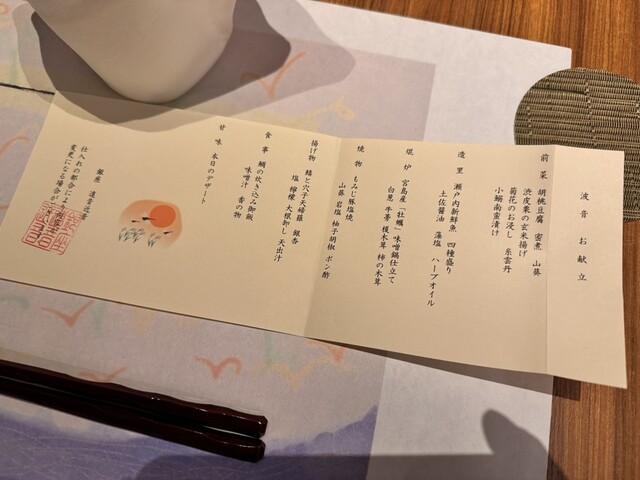 波音 お献立
前菜 胡桃豆腐 蜜煮 山葵
渋皮栗の玄米揚げ
菊花のお浸し 糸雲丹
小鰯南蛮漬け
造里 瀬戸内新鮮魚 四種盛り
土佐醤油 藻塩 ハーブオイル
焜炉 宮島産「牡蠣」味噌鍋仕立て
白葱 牛蒡 榎木茸 柿の木茸
焼物 もみじ豚塩焼
山葵 岩塩 柚子胡椒 ポン酢
揚げ物 鱚と穴子天婦羅 銀杏
塩 檸檬 大根卸し 天出汁
食事 鯛の炊き込み御飯
味噌汁 香の物
甘味 本日のデザート
銀座 遠音近音
仕入れの都合により内容が
変更になる場合が